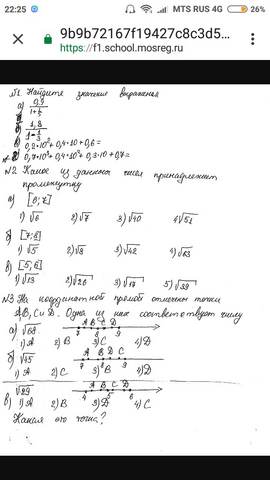 22:25
MTS RUS 4G 26%
9b9b72167f19427c8c3d5...
https://f1.school.mosreg.ru
№1. Найдите значение выражения
а) 0,9 / 1+1/5
б) 1,8 / 1-1/3
0,2•10²+0,4•10+0,6=
0,7•10³+0,4•10²+0,3•10+0,7=
№2 Какое из данных чисел принадлежит
промежутку
а) [6;7]
1) √6 2) √7 3) √40 4 √51
б) [7;8]
1) √5 2) √8 3) √42 4) √63
в) [5;6]
1) √13 2) √26 3) √17 5) √39
№3 На координатной прямой отмечены точки
A, B, C и D. Одна из них соответствует числу
а) √68. A B C D
7 8 9
1) A 2) B 3) C 4) D
б) √75 A B D C
7 8 9
1) A 2) C 3) B 4) D
в) √29 A B C D
4 5 6
1) A 2) B 3) D 4) C
Какая это точка?